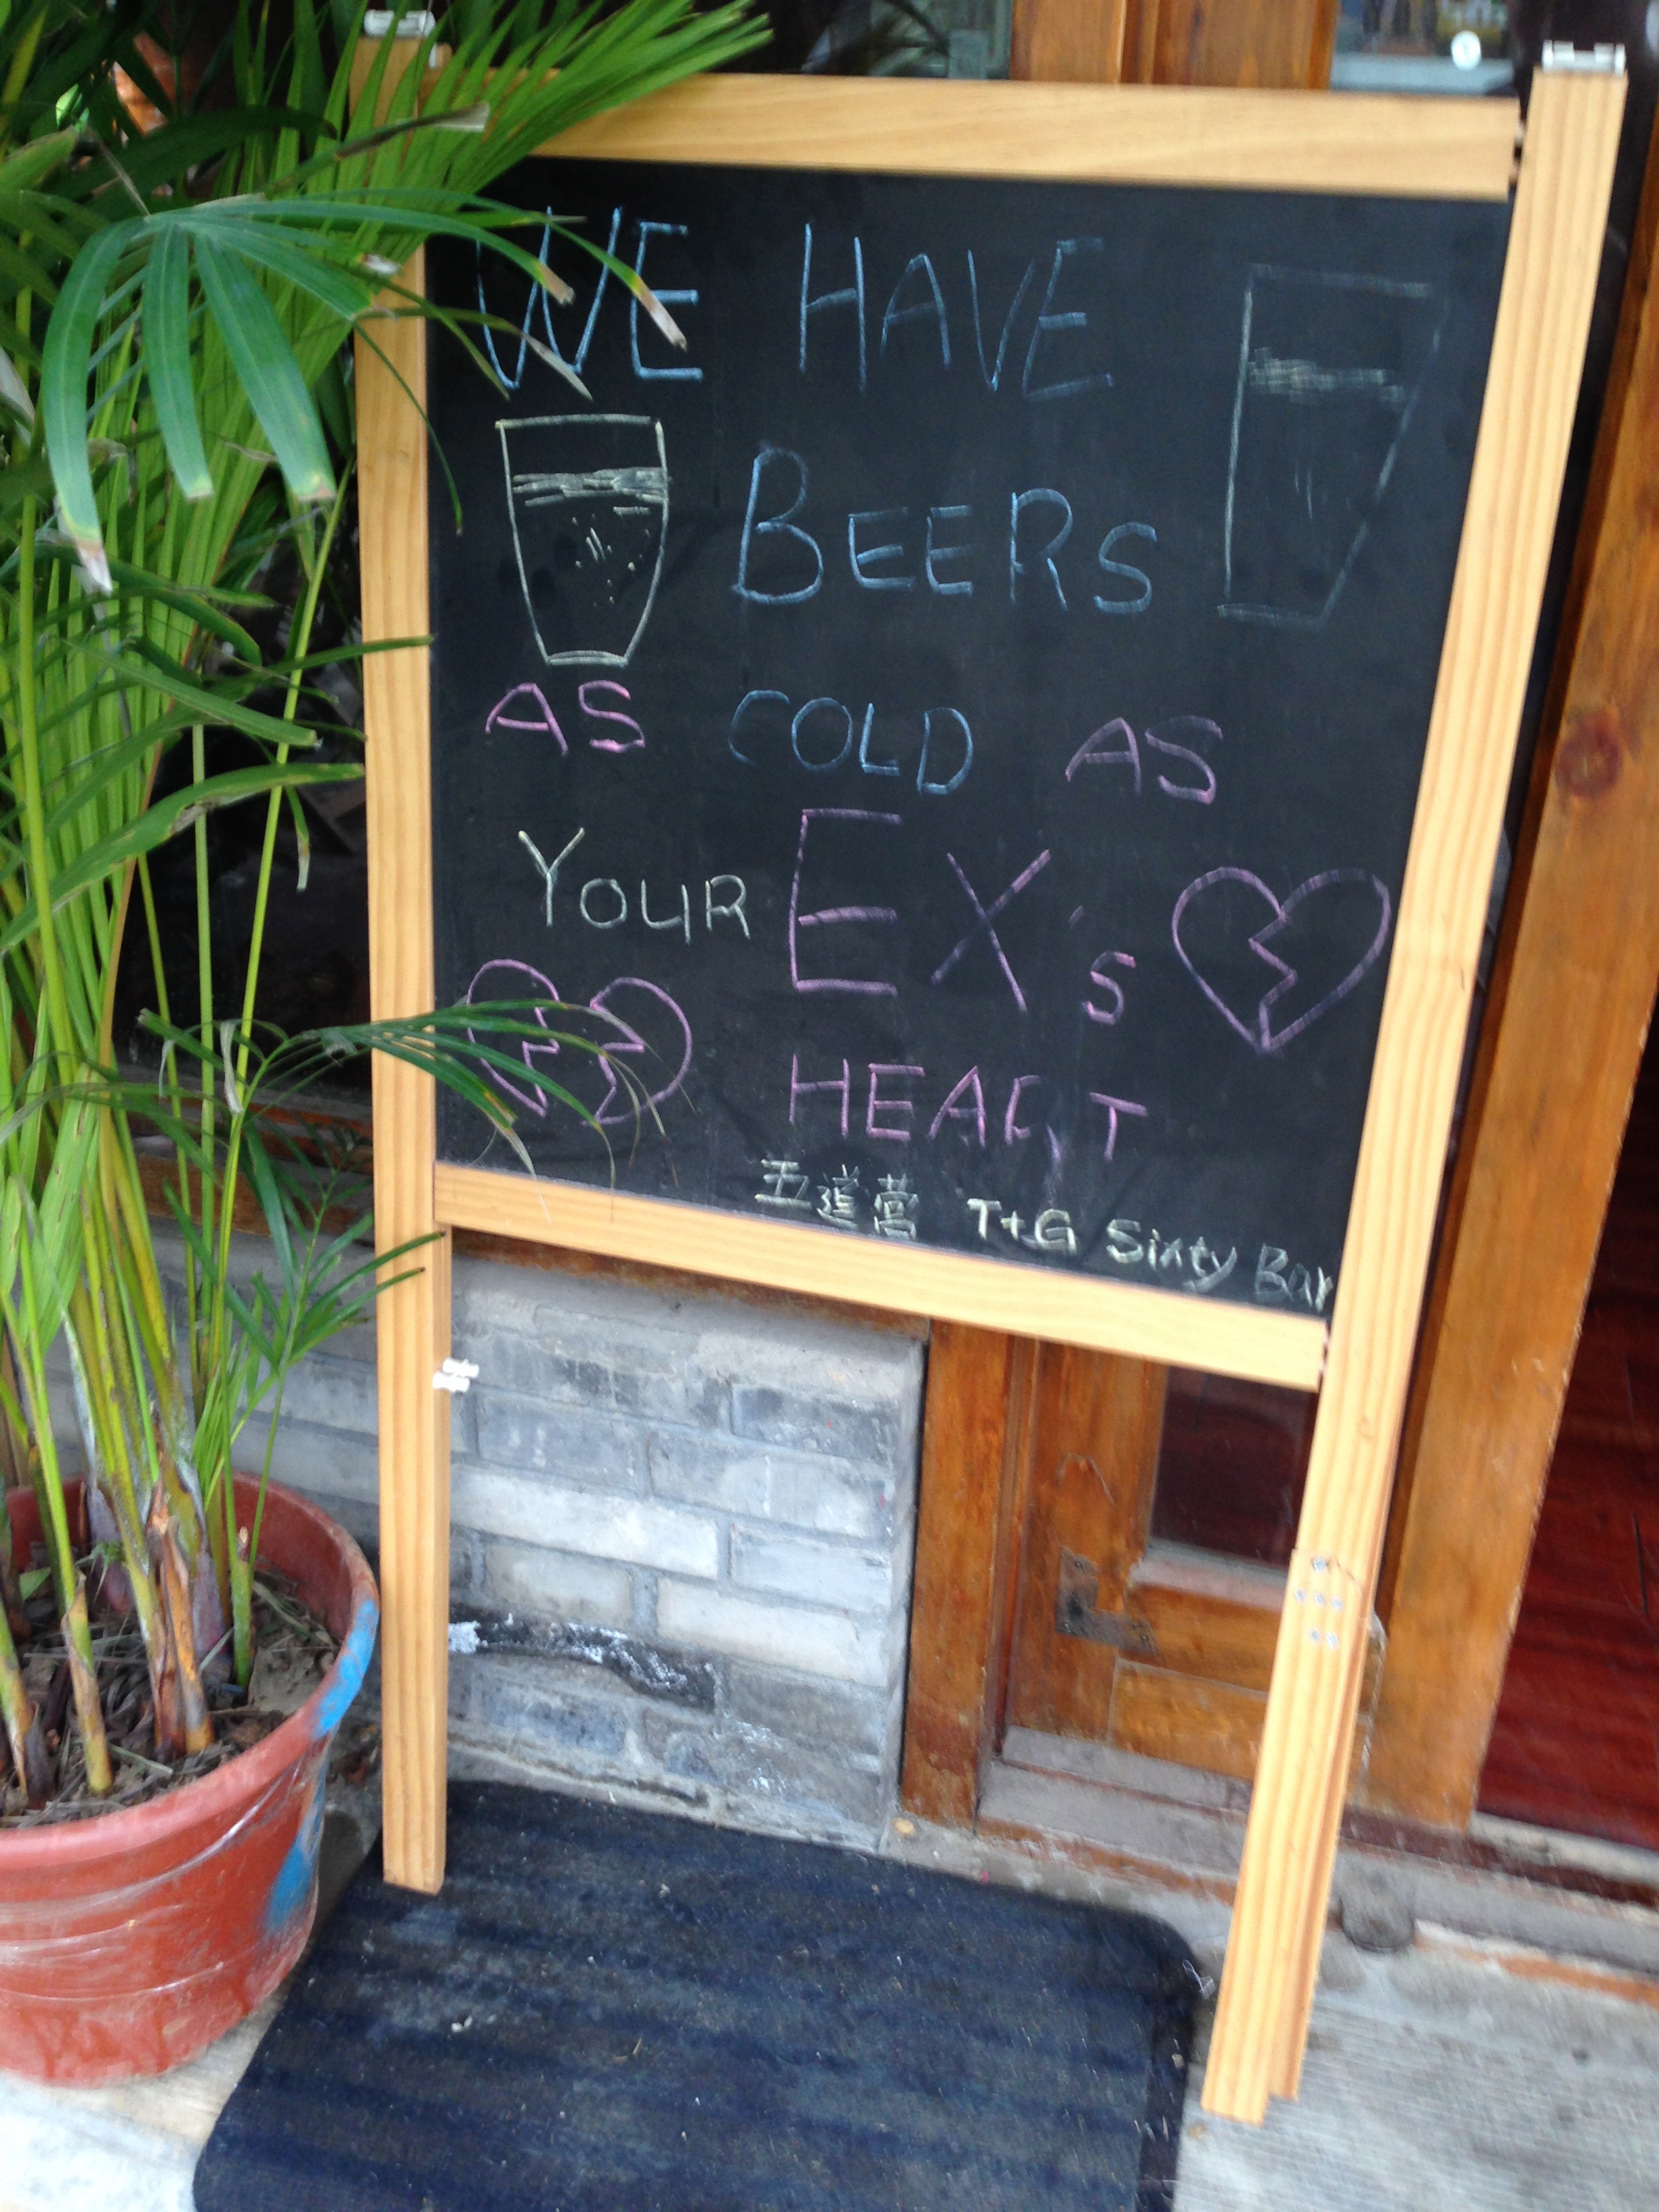 WE HAVE
BEERS
AS COLD AS
YOUR EX's
HEART
五道营 T+G Sixty Bar